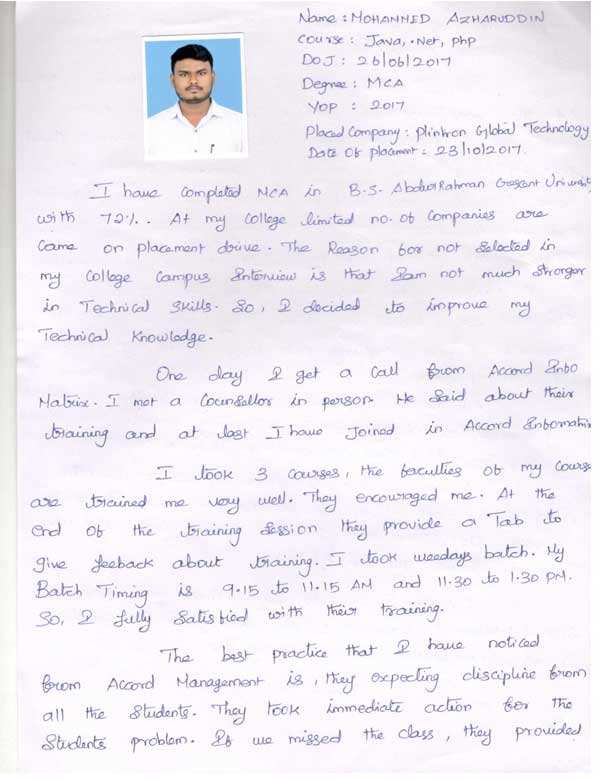 Name : MOHAMMED AZHARUDDIN
Course : Java, .Net, php
DOJ : 26/06/2017
Degree : MCA
YOP : 2017
Placed Company : Plintron Global Technology
Date Of placment : 23/10/2017.
I have completed MCA in B.S. Abdur Rahman Crescent University
with 72%. At my College limited no. of Companies are
Came on placement drive. The Reason for not Selected in
my College Campus Interview is that Iam not much Stronger
in Technical Skills. So, I decided to improve my
Technical Knowledge.
One day I get a Call from Accord Info
Matrix. I met a Counsellor in person. He Said about their
training and at last I have Joined in Accord Infomatrix
I took 3 courses, the faculties of my Course
are trained me very well. They encouraged me. At the
end of the training Session they provide a Tab to
give feeback about training. I took weedays batch. My
Batch Timing is 9.15 to 11.15 AM and 11.30 to 1.30 PM.
So, I fully Satisfied with their training.
The best practice that I have noticed
from Accord Management is, they expecting discipline from
all the Students. They took immediate action for the
Students problem. If we missed the class, they provided